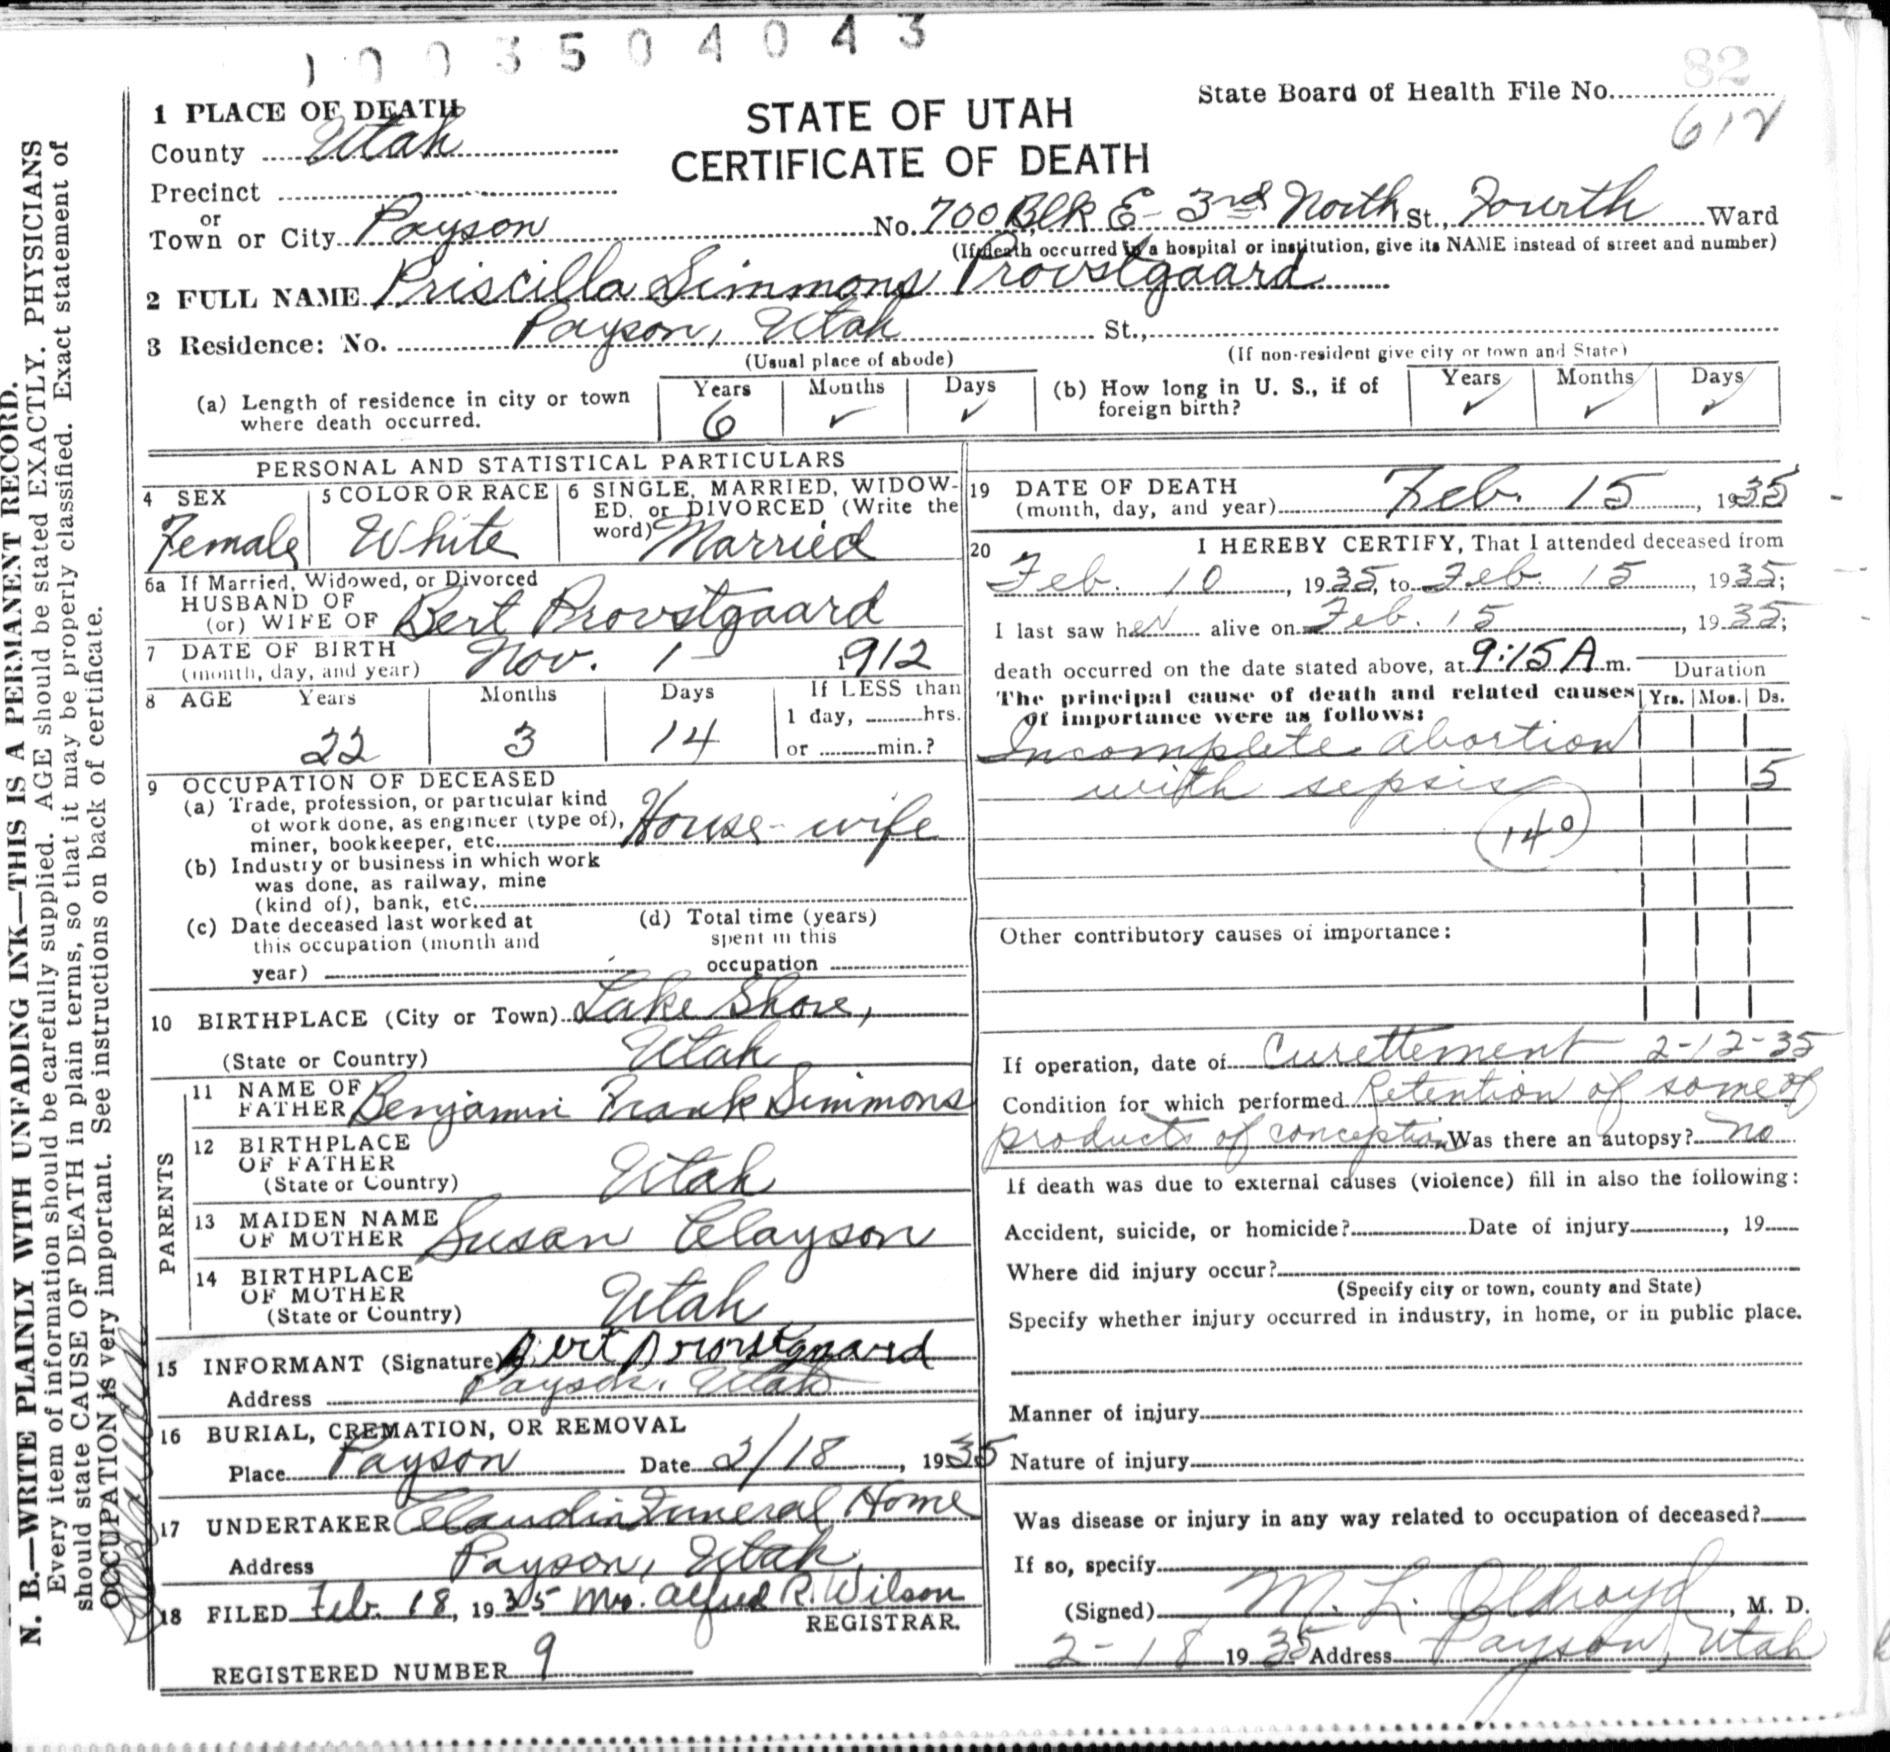 1003504043
82
State Board of Health File No.
612
STATE OF UTAH
CERTIFICATE OF DEATH
1 PLACE OF DEATH
County Utah
Precinct
or
Town or City Payson No. 700 Blk E - 3rd North St., Fourth Ward
(If death occurred in a hospital or institution, give its NAME instead of street and number)
2 FULL NAME Priscilla Simmons Provstgaard
3 Residence: No. Payson, Utah St.,
(Usual place of abode) (If non-resident give city or town and State)
(a) Length of residence in city or town where death occurred. Years 6 Months ✓ Days ✓
(b) How long in U. S., if of foreign birth? Years ✓ Months ✓ Days ✓
PERSONAL AND STATISTICAL PARTICULARS
4 SEX
Female
5 COLOR OR RACE
White
6 SINGLE, MARRIED, WIDOW-
ED, or DIVORCED (Write the
word) Married
6a If Married, Widowed, or Divorced
HUSBAND OF
(or) WIFE OF Bert Provstgaard
7 DATE OF BIRTH
(month, day, and year) Nov. 1 - 1912
8 AGE Years Months Days If LESS than
1 day, hrs.
22 3 14 or min.?
9 OCCUPATION OF DECEASED
(a) Trade, profession, or particular kind
of work done, as engineer (type of),
miner, bookkeeper, etc. House-wife
(b) Industry or business in which work
was done, as railway, mine
(kind of), bank, etc.
(c) Date deceased last worked at
this occupation (month and
year)
(d) Total time (years)
spent in this
occupation
10 BIRTHPLACE (City or Town) Lake Shore,
(State or Country) Utah
PARENTS
11 NAME OF
FATHER Benjamin Frank Simmons
12 BIRTHPLACE
OF FATHER
(State or Country) Utah
13 MAIDEN NAME
OF MOTHER Susan Clayson
14 BIRTHPLACE
OF MOTHER
(State or Country) Utah
15 INFORMANT (Signature) Bert Provstgaard
Address Payson, Utah
16 BURIAL, CREMATION, OR REMOVAL
Place Payson Date 2/18, 1935
17 UNDERTAKER Claudin Funeral Home
Address Payson, Utah
18 FILED Feb. 18, 1935 Mrs. Alfred R. Wilson
REGISTRAR.
REGISTERED NUMBER 9
19 DATE OF DEATH
(month, day, and year) Feb. 15, 1935
20 I HEREBY CERTIFY, That I attended deceased from
Feb. 10, 1935, to Feb. 15, 1935;
I last saw her alive on Feb. 15, 1935;
death occurred on the date stated above, at 9:15 A m.
Duration
The principal cause of death and related causes
of importance were as follows:
Yrs. Mos. Ds.
Incomplete abortion
with sepsis 5
140
Other contributory causes of importance:
If operation, date of Curettement 2-12-35
Condition for which performed Retention of some of
products of conception Was there an autopsy? No
If death was due to external causes (violence) fill in also the following:
Accident, suicide, or homicide? Date of injury , 19
Where did injury occur?
(Specify city or town, county and State)
Specify whether injury occurred in industry, in home, or in public place.
Manner of injury
Nature of injury
Was disease or injury in any way related to occupation of deceased?
If so, specify
(Signed) M. L. Oldroyd, M. D.
2-18 1935 Address Payson, Utah
N. B.—WRITE PLAINLY WITH UNFADING INK—THIS IS A PERMANENT RECORD.
Every item of information should be carefully supplied. AGE should be stated EXACTLY. PHYSICIANS
should state CAUSE OF DEATH in plain terms, so that it may be properly classified. Exact statement of
OCCUPATION is very important. See instructions on back of certificate.